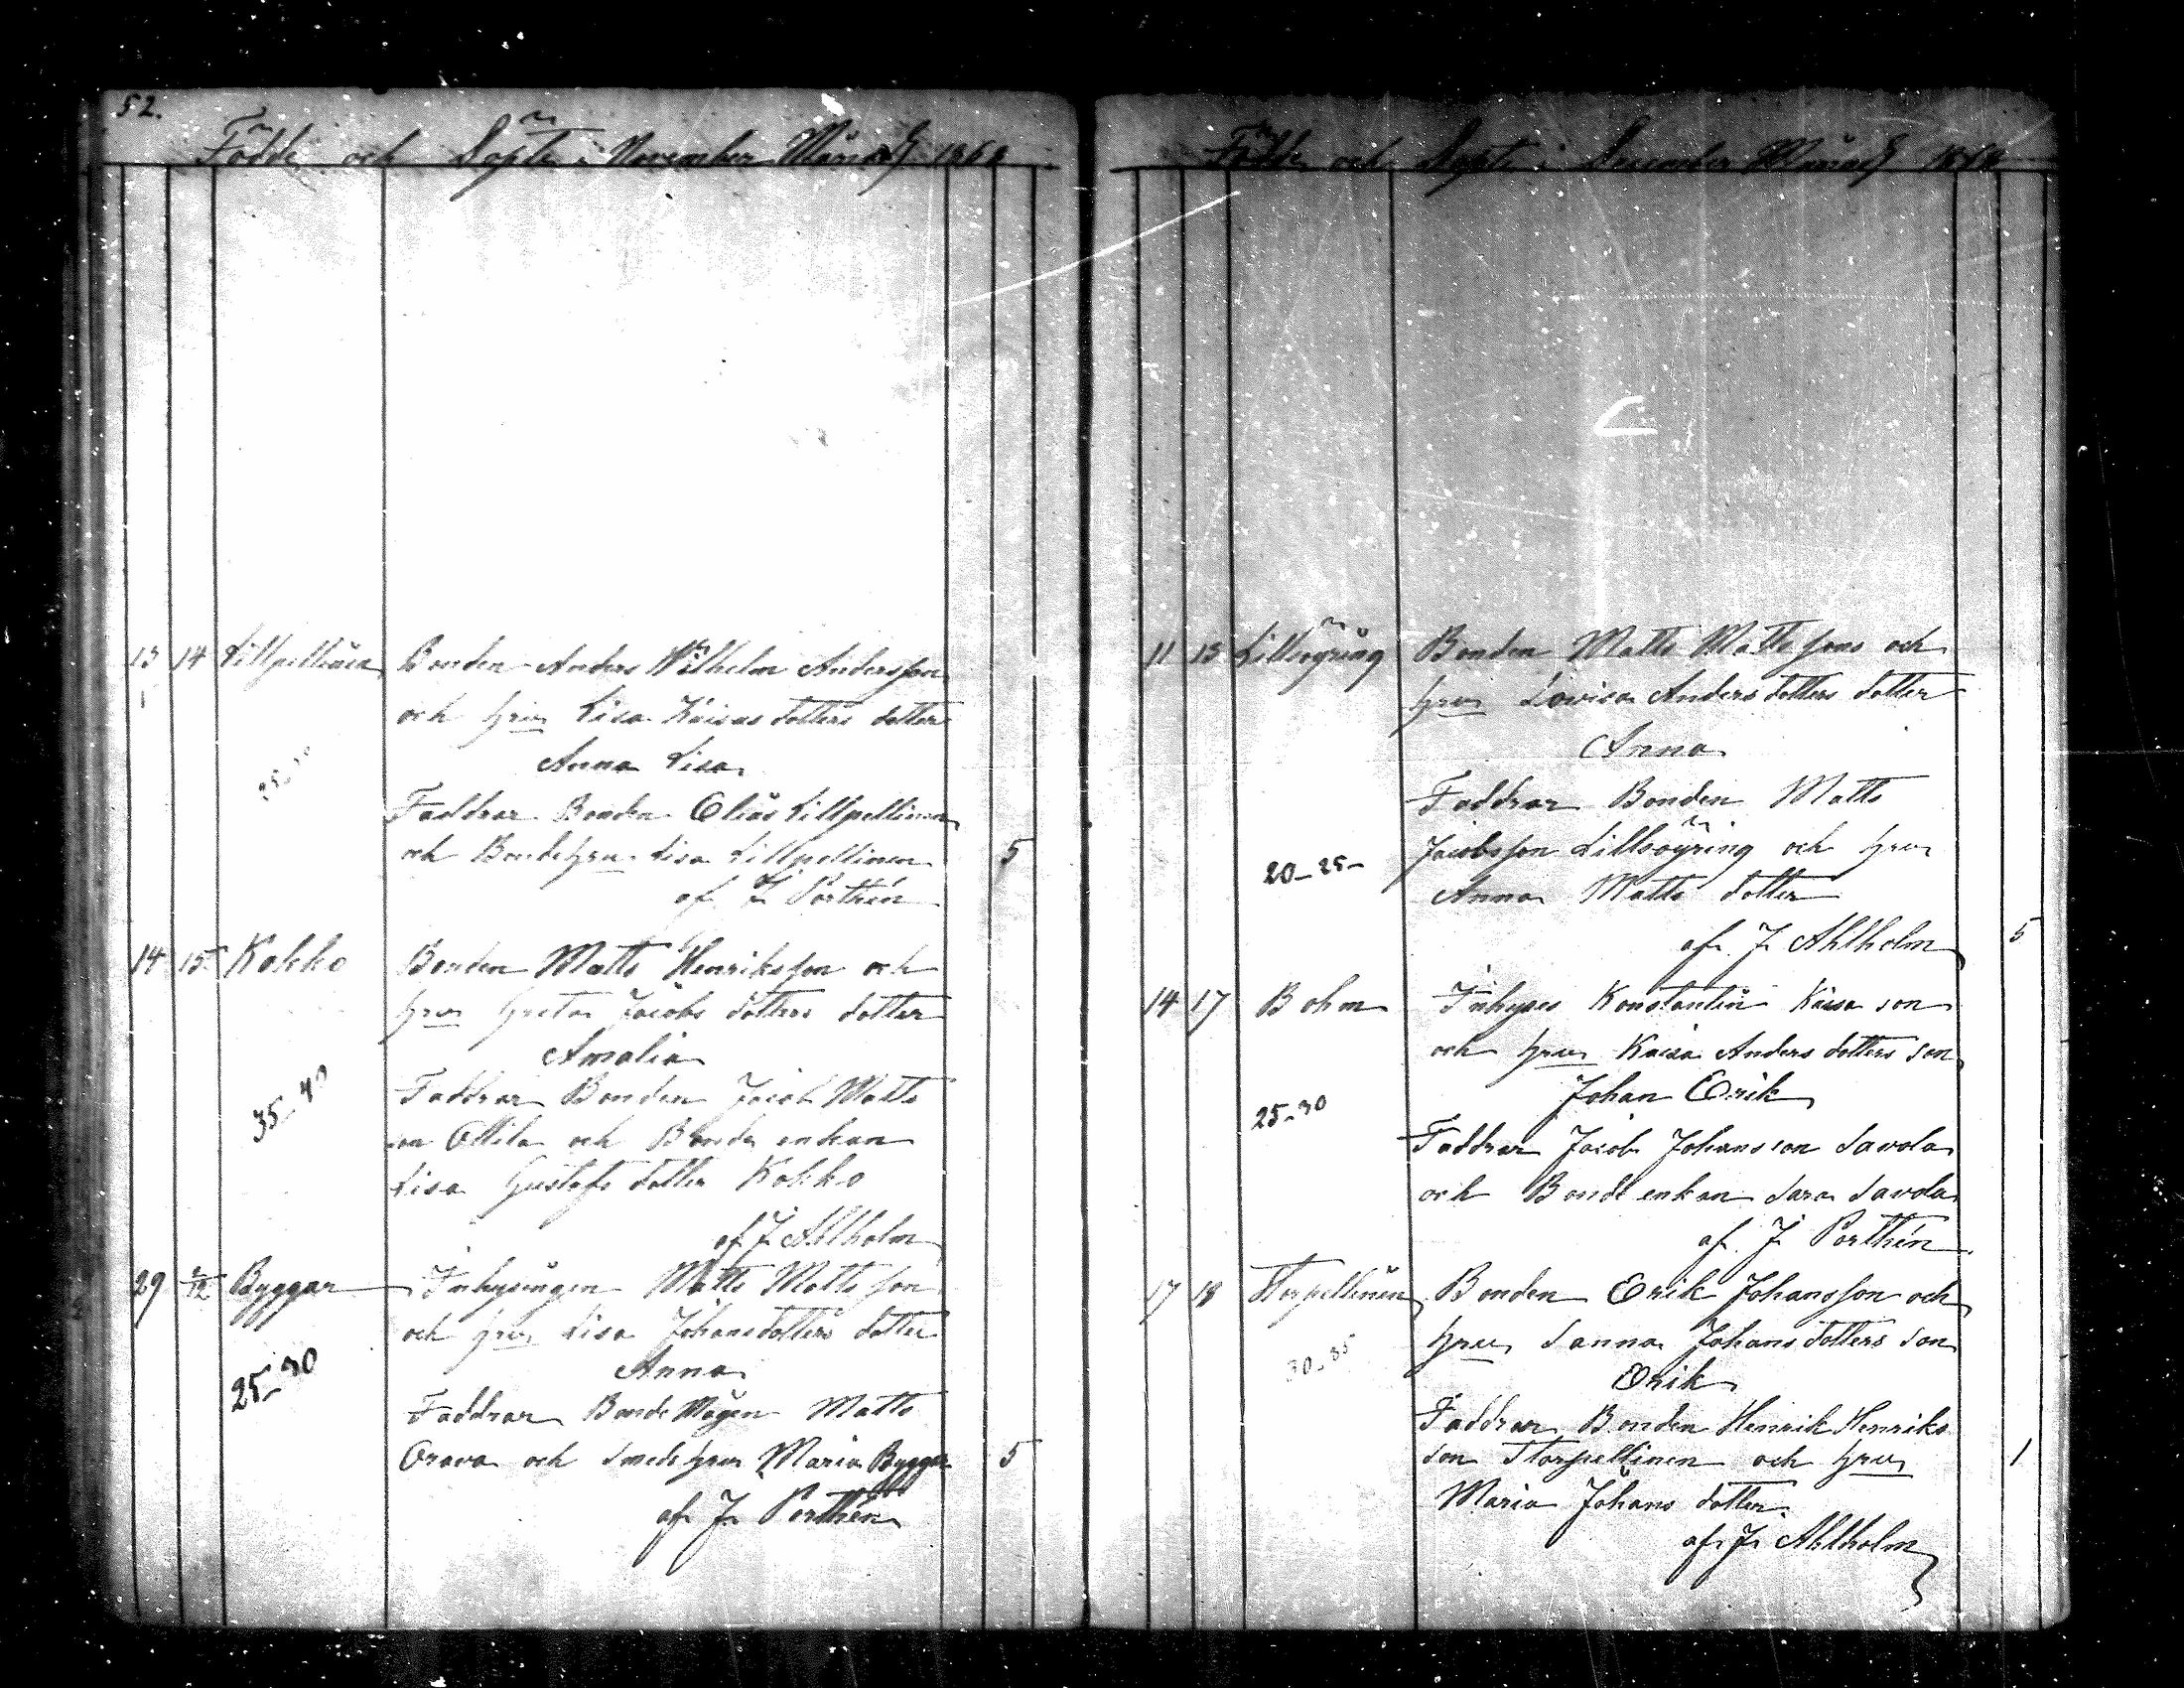 52.
Födde och Döpte i November Månad 1868
13 14 Lillpellinen Bonden Anders Wilhelm Andersson
och hru Lisa Kaisas dotters dotter
Anna Lisa
Faddrar Bonden Elias Lillpellinen
och Bondehru Lisa Lillpellinen 5
af J Porthén
14 15 Kokko Bonden Matts Henriksson och
hru Greta Jacobs dotters dotter
Amalia
35-40 Faddrar Bonden Jacob Matts
son Ollila och Bonde enkan
Lisa Gustafs dotter Kokko
af J. Ahlholm
29 2/12 Byggar Inhysingen Matts Matts son
och hru Lisa Johansdotters dotter
25-30 Anna
Faddrar Bonde Mågen Matts
Orava och Smedehru Maria Byggar 5
af J. Porthén
Födde och Döpte i December Månad 1868
11 13 Lillsöyring Bonden Matts Matts sons och
hru Lovisa Anders dotters dotter
Anna
Faddrar Bonden Matts
20-25- Jacobsson Lillsöyring och hru
Anna Matts dotter
af J Ahlholm 5
14 17 Bohm Inhyses Konstantin Kaisa son
och hru Kaisa Anders dotters son
25-30 Johan Erik
Faddrar Jacob Johansson Savola
och Bonde enkan Sara Savola
af J Porthén
17 18 Storpellinen Bonden Erik Johansson och
30-35 hru Sanna Johans dotters son
Erik
Faddrar Bonden Henrik Henriks
son Storpellinen och hru 1
Maria Johans dotter
af J. Ahlholm